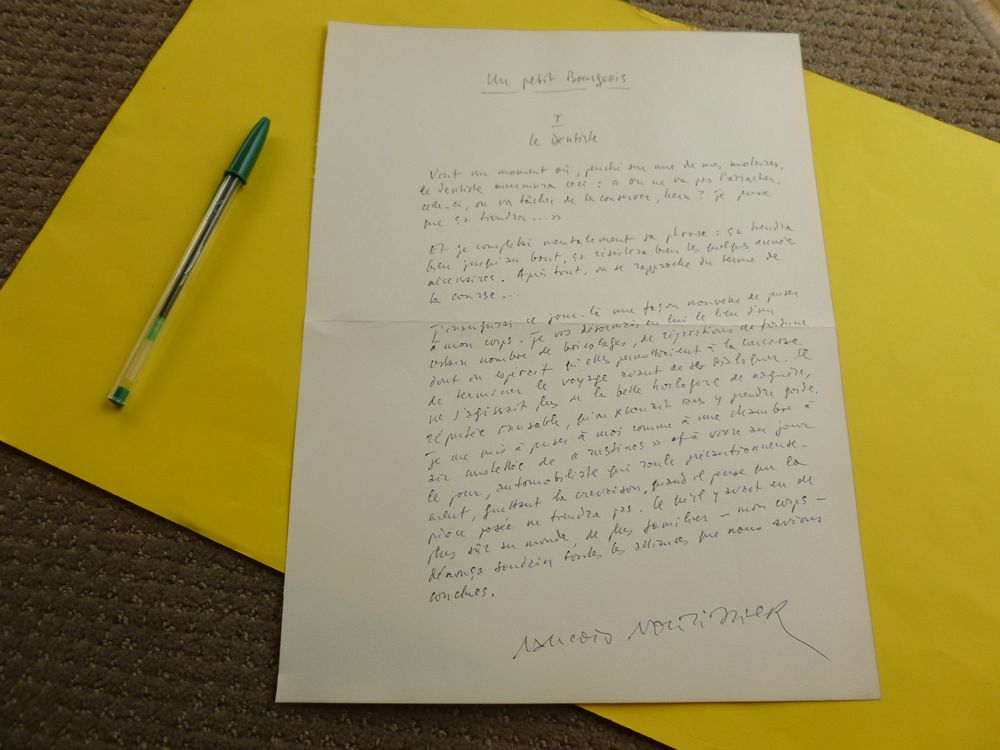 Un petit Bourgeois
I
Le dentiste
Vint un moment où, penché sur une de mes molaires,
le dentiste murmura ceci : « on ne va pas l'arracher,
celle-ci, on va tâcher de la conserver, hein ? Je pense
que ça tiendra.... »
Et je complétai mentalement sa phrase : ça tiendra
bien jusqu'au bout, ça résistera bien les quelques années
nécessaires. Après tout, on se rapproche du terme de
la course...
J'inaugurai ce jour-là une façon nouvelle de penser
à mon corps. Je vis désormais en lui le lieu d'un
certain nombre de bricolages, de réparations de fortune
dont on espérait qu'elles permettraient à la carcasse
de terminer le voyage avant de se disloquer. Il
ne s'agissait plus de la belle horlogerie de naguère,
réputée inusable, qu'on sans y prendre garde.
Je me mis à penser à moi comme à une chambre à
air constellée de « rustines » et à vivre au jour
le jour, automobiliste qui roule précautionneuse-
ment, guettant la crevaison, quand il pense que la
pièce posée ne tiendra pas. Ce qu'il y avait eu de
plus sûr au monde, de plus familier – mon corps –
dénonça soudain toutes les alliances que nous avions
conclues.
François Nourissier